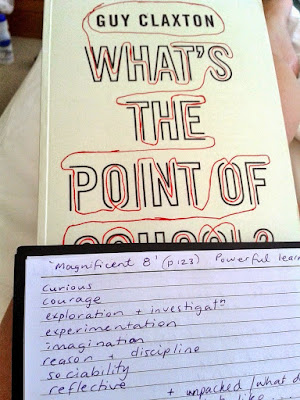 GUY CLAXTON
WHAT'S
THE
POINT OF
SCHOOL?
'Magnificent 8' (p123) Powerful lear
curious
courage
exploration + investigatn
experimentation
imagination
reason + discipline
sociability
reflective
+ unpacked / what d